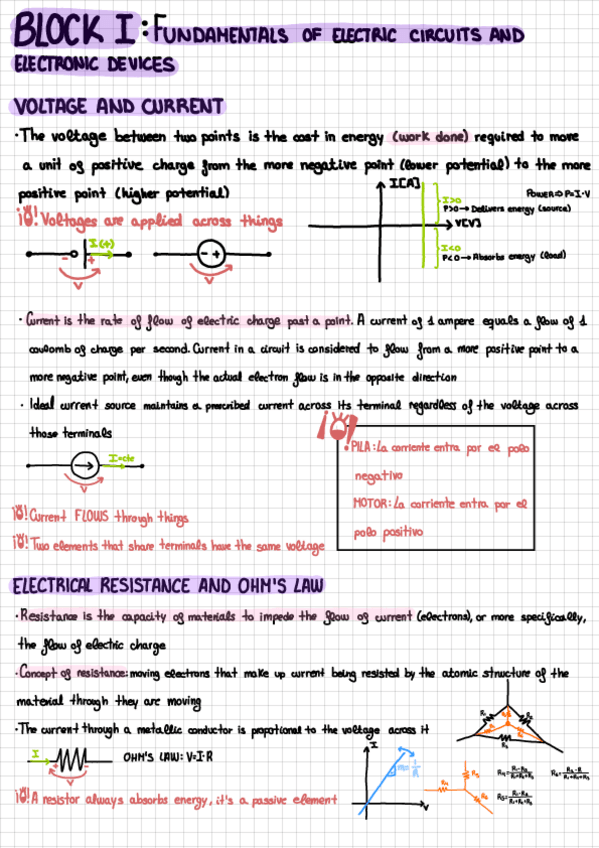 BLOCK I: FUNDAMENTALS OF ELECTRIC CIRCUITS AND
ELECTRONIC DEVICES
VOLTAGE AND CURRENT
· The voltage between two points is the cost in energy (work done) required to move
a unit of positive charge from the more negative point (lower potential) to the more
positive point (higher potential)
¡Ø! Voltages are applied across things
I(+)
- +
V
- +
V
I[A]
V[V]
I>0
P>0 → Delivers energy (source)
I<0
P<0 → Absorbs energy (load)
POWER ⇒ P=I·V
· Current is the rate of flow of electric charge past a point. A current of 1 ampere equals a flow of 1
coulomb of charge per second. Current in a circuit is considered to flow from a more positive point to a
more negative point, even though the actual electron flow is in the opposite direction
· Ideal current source maintains a prescribed current across its terminal regardless of the voltage across
those terminals
I=cte
V
¡Ø!
· PILA: La corriente entra por el polo
negativo
MOTOR: La corriente entra por el
polo positivo
¡Ø! Current FLOWS through things
¡Ø! Two elements that share terminals have the same voltage
ELECTRICAL RESISTANCE AND OHM'S LAW
· Resistance is the capacity of materials to impede the flow of current (electrons), or more specifically,
the flow of electric charge
· Concept of resistance: moving electrons that make up current being resisted by the atomic structure of the
material through they are moving
· The current through a metallic conductor is propotional to the voltage across it
I
- +
V
OHM'S LAW: V=I·R
¡Ø! A resistor always absorbs energy, it's a passive element
I
V
m=1/R